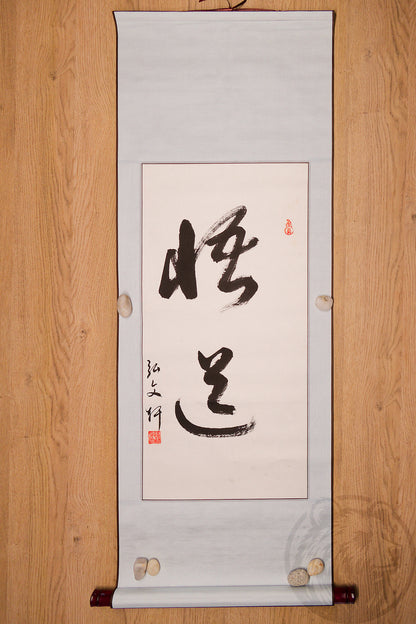 悟道
弘文轩